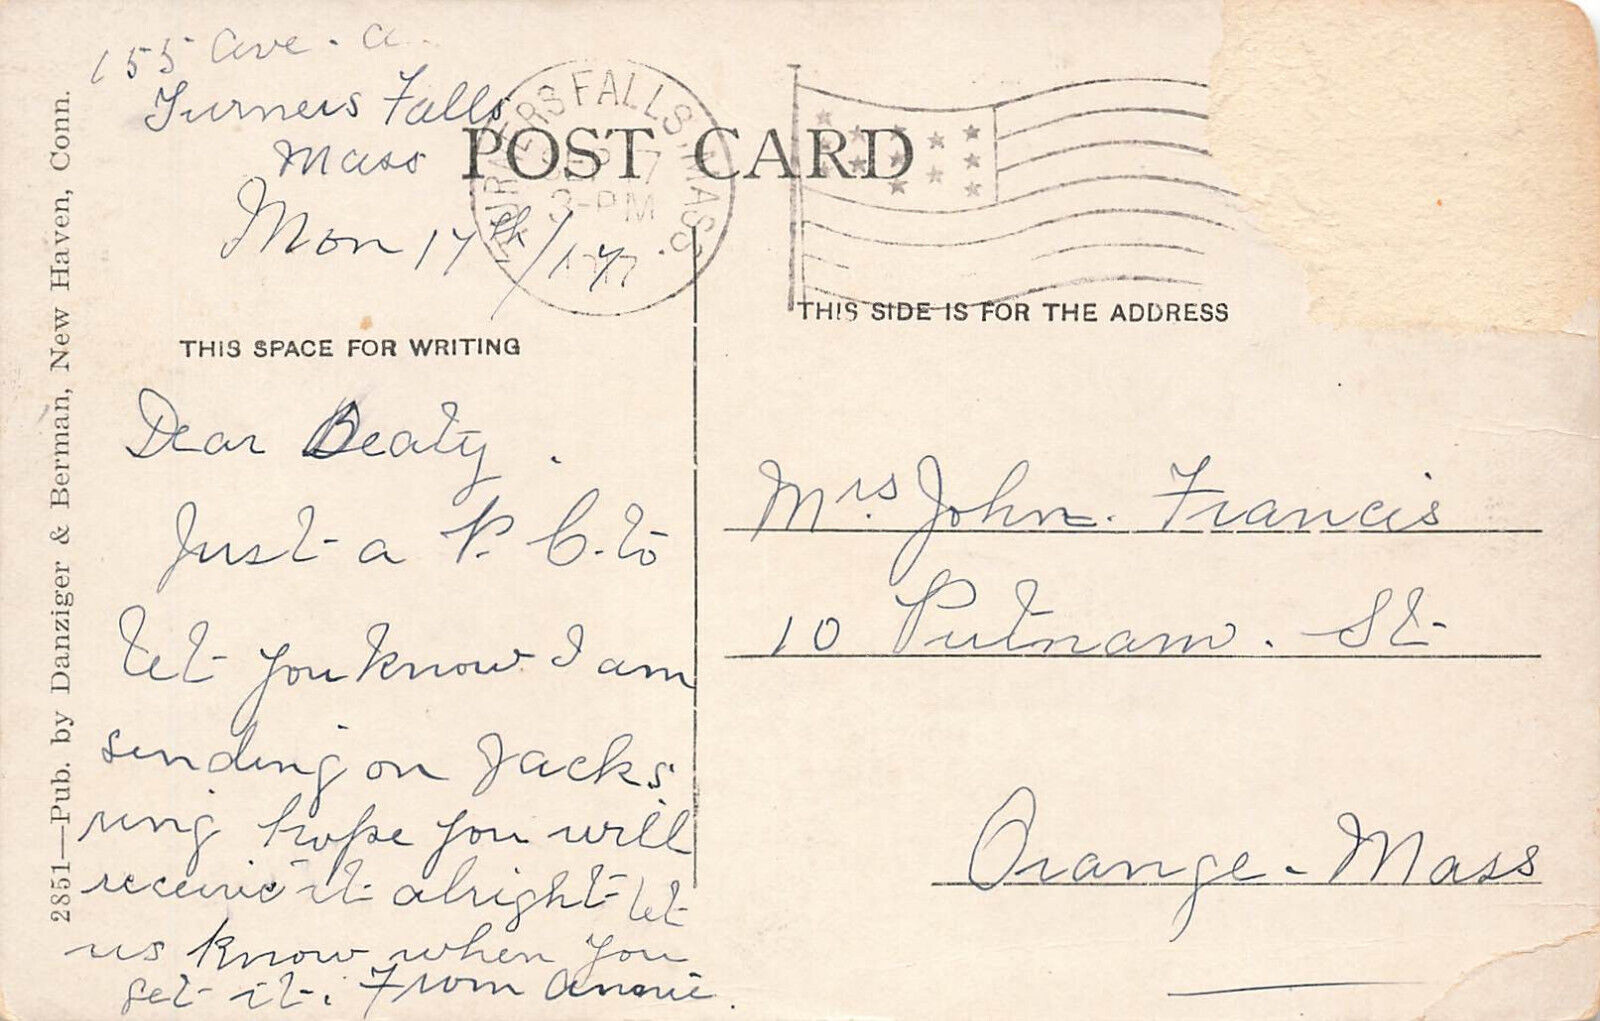 155 Ave. A.
Turners Falls
Mass
Mon 17th/17
POST CARD
TURNERS FALLS. MASS.
3-PM
THIS SPACE FOR WRITING
THIS SIDE IS FOR THE ADDRESS
Dear Beaty.
Just a P. C. to
let you know I am
sending on Jacks
ring hope you will
receive it alright let
us know when you
get it. From Annie.
Mrs. John. Francis
10 Putnam. St
Orange. Mass
2851—Pub. by Danziger & Berman, New Haven, Conn.